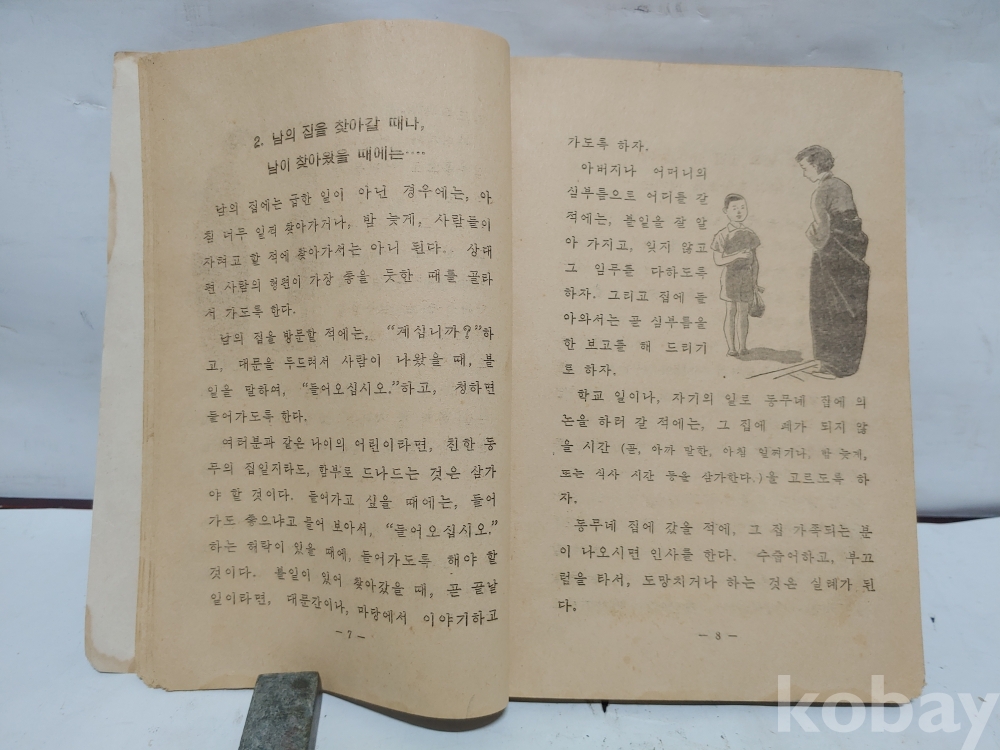 2. 남의 집을 찾아갈 때나,
남이 찾아왔을 때에는····
남의 집에는 급한 일이 아닌 경우에는, 아
침 너무 일찍 찾아가거나, 밤 늦게, 사람들이
자려고 할 적에 찾아가서는 아니 된다. 상대
편 사람의 형편이 가장 좋을 듯한 때를 골라
서 가도록 한다.
남의 집을 방문할 적에는, “계십니까?”하
고, 대문을 두드려서 사람이 나왔을 때, 볼
일을 말하여, “들어오십시오.”하고, 청하면
들어가도록 한다.
여러분과 같은 나이의 어린이라면, 친한 동
무의 집일지라도, 함부로 드나드는 것은 삼가
야 할 것이다. 들어가고 싶을 때에는, 들어
가도 좋으냐고 물어 보아서, “들어오십시오.”
하는 허락이 있을 때에, 들어가도록 해야 할
것이다. 볼일이 있어 찾아갔을 때, 곧 끝날
일이라면, 대문간이나, 마당에서 이야기하고
－7－
가도록 하자.
아버지나 어머니의
심부름으로 어디를 갈
적에는, 볼일을 잘 알
아 가지고, 잊지 않고
그 임무를 다하도록
하자. 그리고 집에 돌
아와서는 곧 심부름을
한 보고를 해 드리기
로 하자.
학교 일이나, 자기의 일로 동무네 집에 의
논을 하러 갈 적에는, 그 집에 폐가 되지 않
을 시간 (곧, 아까 말한, 아침 일찍거나, 밤 늦게,
또는 식사 시간 등을 삼가한다.)을 고르도록 하
자.
동무네 집에 갔을 적에, 그 집 가족되는 분
이 나오시면 인사를 한다. 수줍어하고, 부끄
럼을 타서, 도망치거나 하는 것은 실례가 된
다.
－8－
kobay